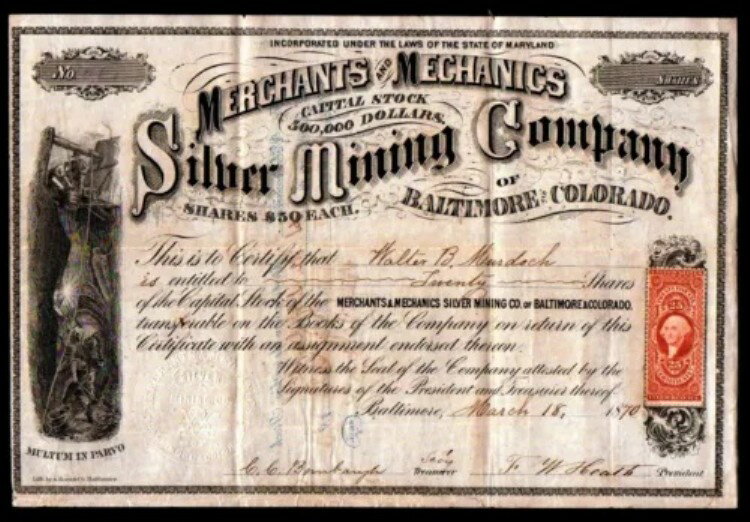 INCORPORATED UNDER THE LAWS OF THE STATE OF MARYLAND
No.
SHARES
MERCHANTS AND MECHANICS
CAPITAL STOCK
500,000 DOLLARS.
Silver Mining Company
SHARES $50 EACH.
OF
BALTIMORE AND COLORADO.
This is to Certify that Walter B. Murdoch
is entitled to Twenty Shares
of the Capital Stock of the MERCHANTS & MECHANICS SILVER MINING CO. OF BALTIMORE & COLORADO.
transferable on the Books of the Company on return of this
Certificate with an assignment endorsed thereon.
Witness the Seal of the Company attested by the
Signatures of the President and Treasurer thereof.
Baltimore, March 18, 1870
MULTUM IN PARVO
C. C. Treasurer President